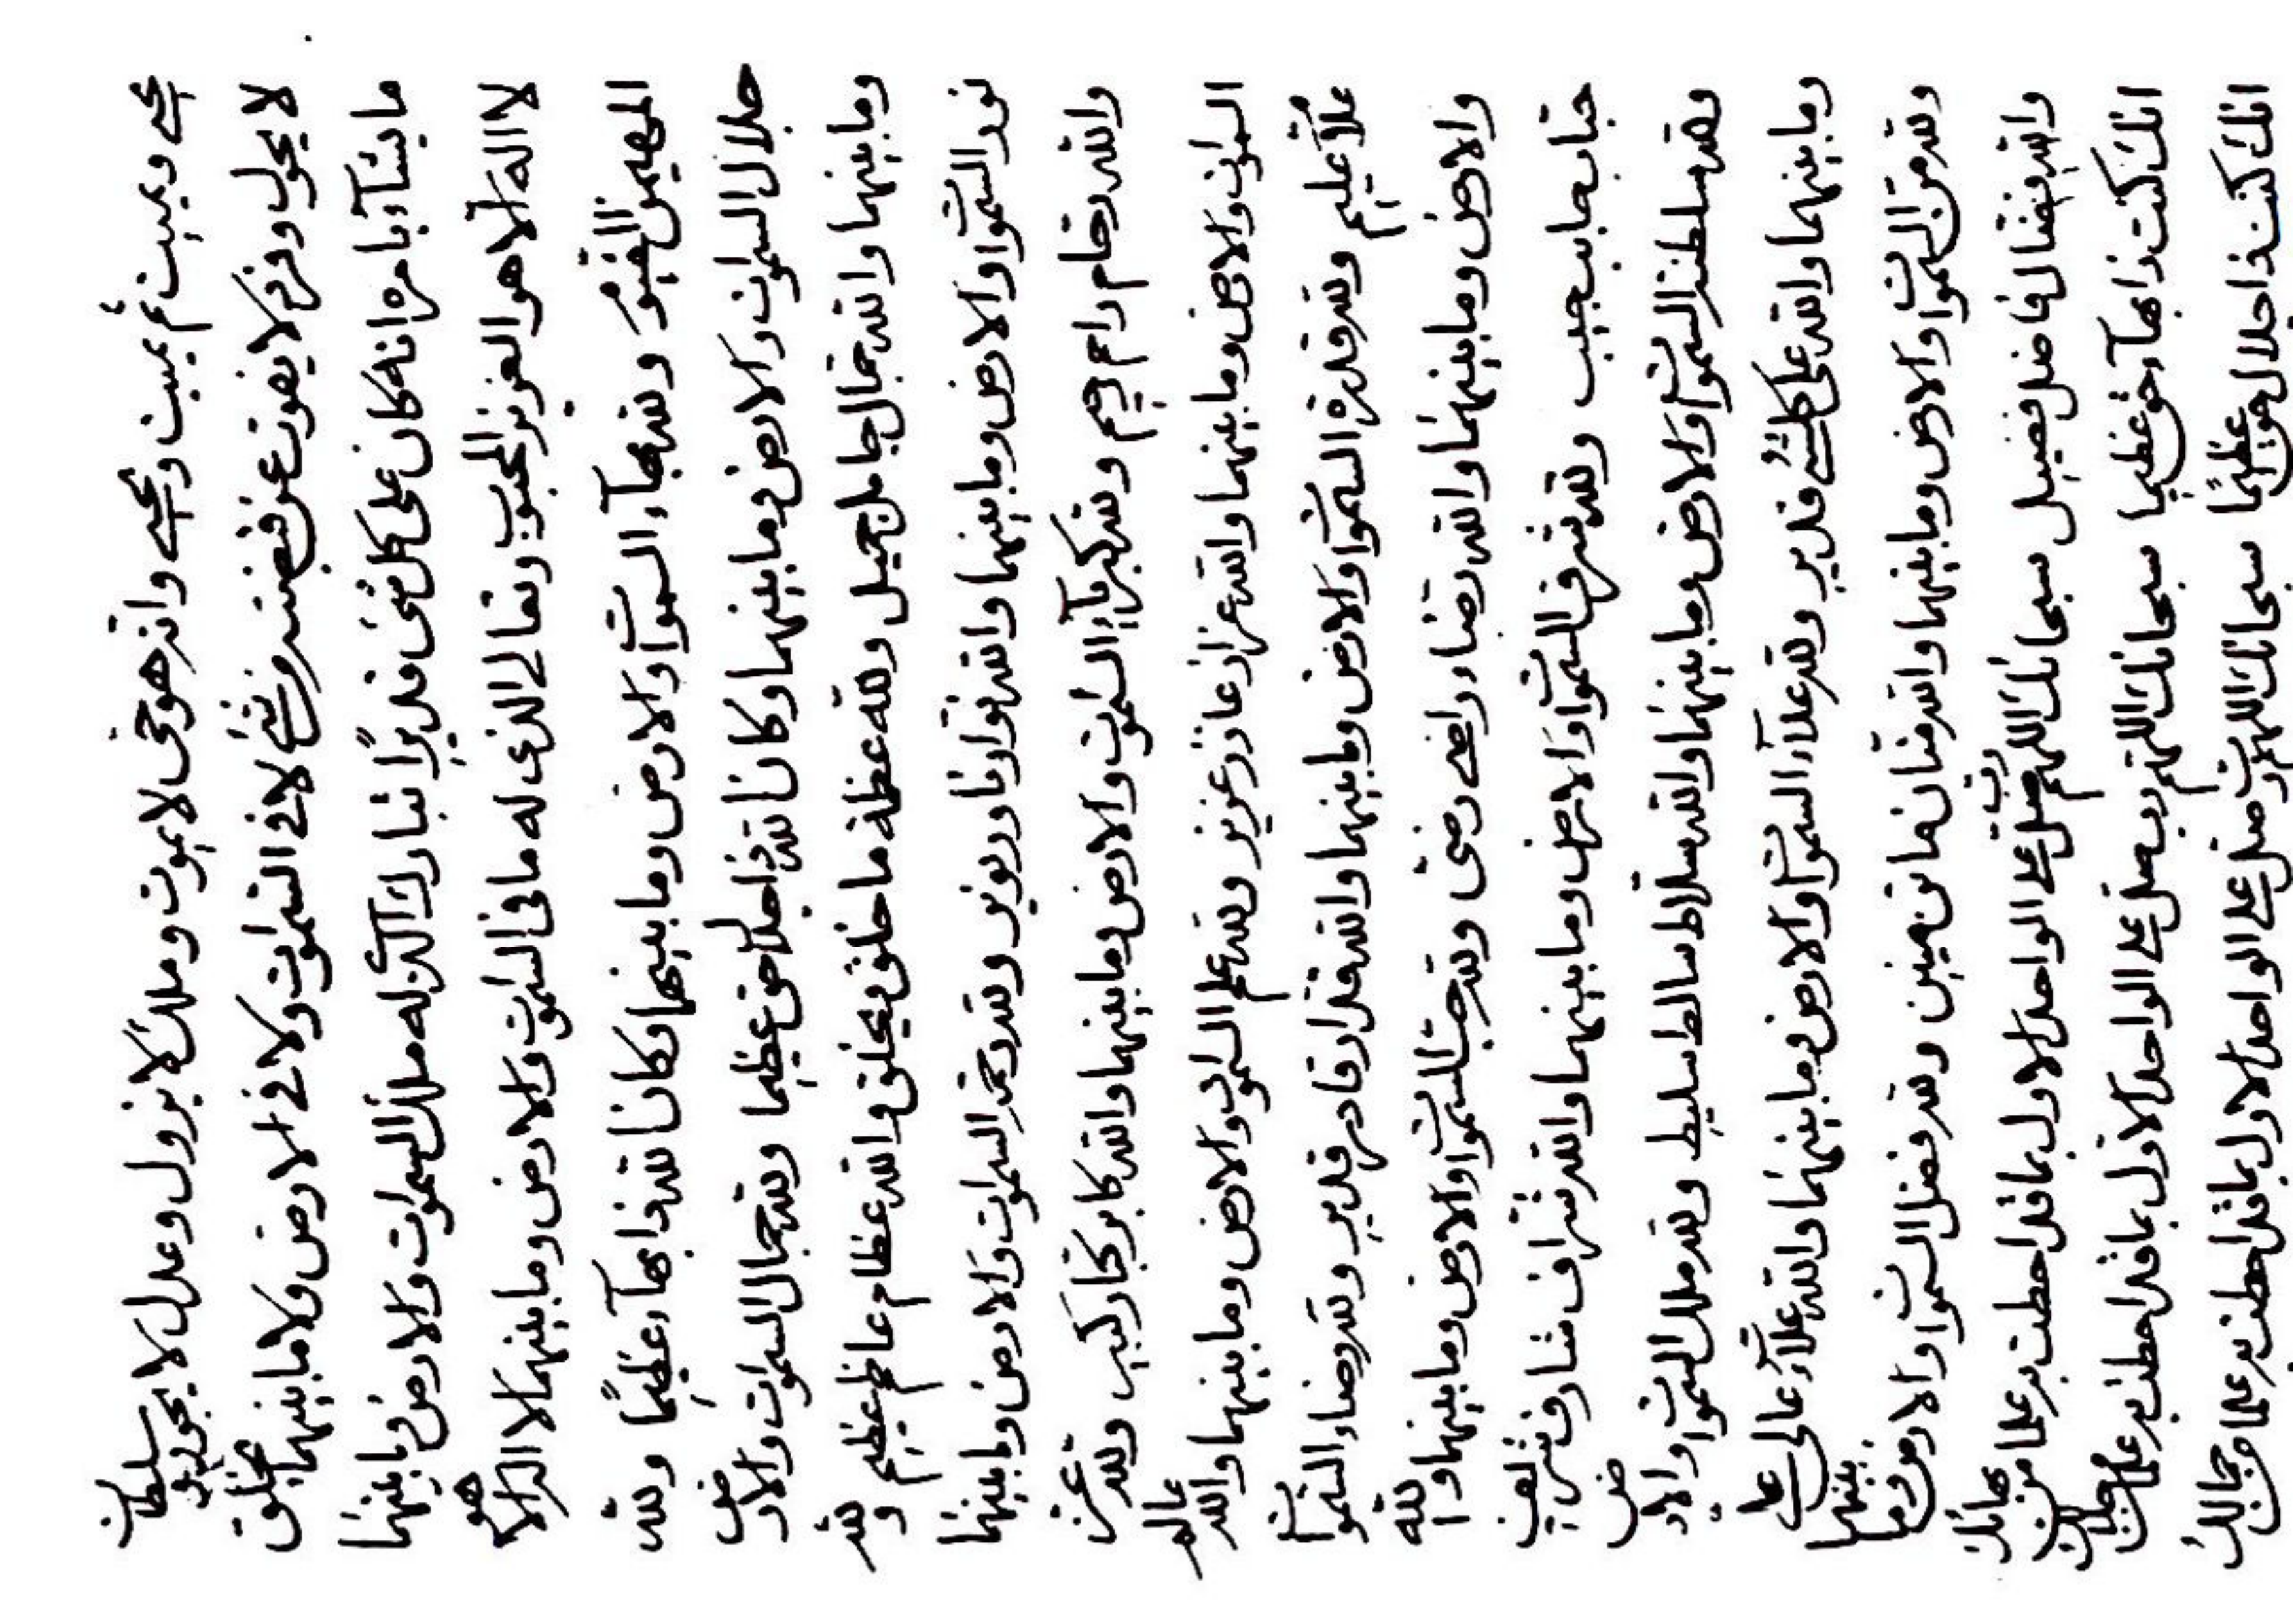 يحيى ويميت ثم يميت ويحيى وانه هو حى لا يموت وملك لا يزول وعدل لا يجور وسلطان
لا يحول وفرد لا يفوت عن قبضته من شئ لا فى السموات ولا فى الارض ولا ما بينهما يخلق
ما يشآء بامره انه كان على كل شئ قديرا تبارك الذى له ملك السموات والارض وما بينهما
لا اله الا هو العزيز المحبوب وتعالى الذى له ما فى السموات والارض وما بينهما لا اله الا هو
المهيمن القيوم ولله بهآء السموات والارض وما بينهما وكان الله ذا بهآء عظيما ولله
جلال السموات والارض وما بينهما وكان الله ذا جلال حق عظيما ولله جمال السموات والارض
وما بينهما والله جمال جامل جميل ولله عظمة ما خلق ويخلق والله عظام عاظم عظيم ولله
نور السموات والارض وما بينهما والله نوار ناور نوير ولله رحمة السموات والارض وما بينهما
والله رحام راحم رحيم ولله كبريآء السموات والارض وما بينهما والله كبار كابر كبير ولله عزة
السموات والارض وما بينهما والله عزاز عازز عزيز ولله علم السموات والارض وما بينهما والله عالم
علام عليم ولله قدرة السموات والارض وما بينهما والله قدار قادر قدير ولله رضاء السموات
والارض وما بينهما والله رضاء راضى رضى ولله حب السموات والارض وما بينهما والله
حباب حابب حبيب ولله شرف السموات والارض وما بينهما والله شراف شارف شريف
ولله سلطنة السموات والارض وما بينهما والله سلاط سالط سليط ولله ملك السموات والارض
وما بينهما والله على كل شئ قدير ولله علآء السموات والارض وما بينهما والله علآء عالى على
ولله من السموات والارض وما بينهما والله منان مانن منين ولله فضل السموات والارض وما بينهما
والله فضال فاضل فضيل سبحانك اللهم رب صل على الواحد الاول بما قد احطت به علما من بهائك
انك كنت ذا بهآء حق عظيما سبحانك اللهم رب صل على الواحد الاول بما قد احطت به علما من جلالك
انك كنت ذا جلال حق عظيما سبحانك اللهم رب صل على الواحد الاول بما قد احطت به علما من جمالك